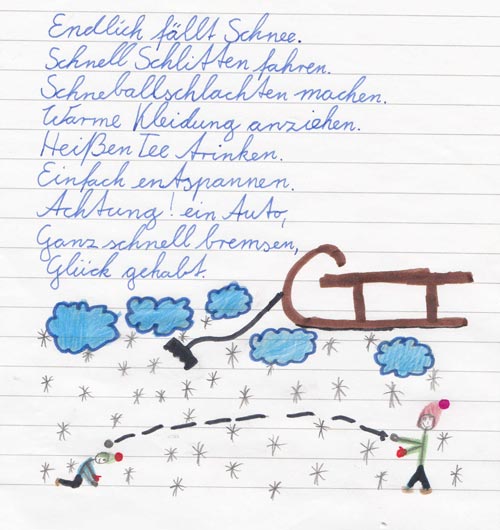 Endlich fällt Schnee.
Schnell Schlitten fahren.
Schneballschlachten machen.
Warme Kleidung anziehen.
Heißen Tee trinken.
Einfach entspannen.
Achtung! ein Auto,
Ganz schnell bremsen,
Glück gehabt.